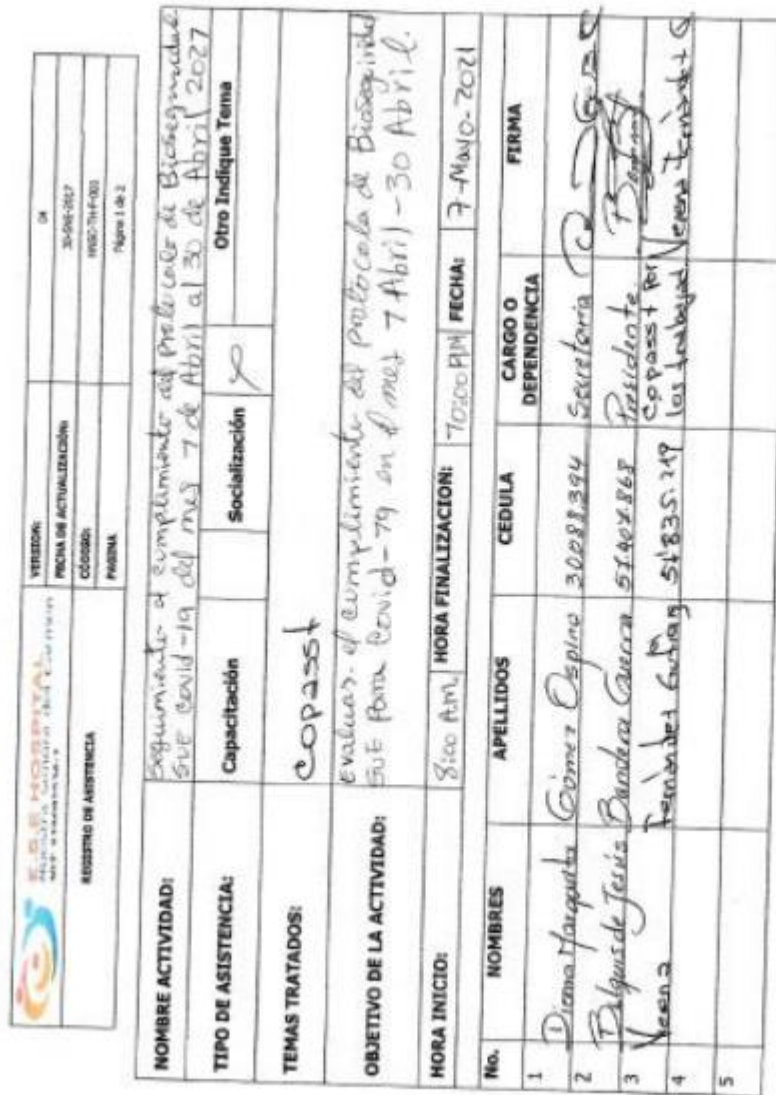 E.S.E HOSPITAL
Nuestra Señora del Carmen
REGISTRO DE ASISTENCIA
VERSIÓN: 04
FECHA DE ACTUALIZACIÓN: 30-ENE-2017
CÓDIGO: HNSC-TH-F-003
PÁGINA Página 1 de 2
NOMBRE ACTIVIDAD: Seguimiento al cumplimiento del protocolo de Bioseguridad
SUE Covid-19 del mes 1 de Abril al 30 de Abril 2021
TIPO DE ASISTENCIA: Capacitación Socialización Otro Indique Tema
TEMAS TRATADOS: Copasst
OBJETIVO DE LA ACTIVIDAD: Evaluar el cumplimiento del protocolo de Bioseguridad
SUE para Covid-19 en el mes 1 Abril - 30 Abril.
HORA INICIO: 8:00 A.M. HORA FINALIZACION: 10:00 AM FECHA: 7-Mayo-2021
No. NOMBRES APELLIDOS CEDULA CARGO O DEPENDENCIA FIRMA
1 Margarita Gómez Ospino 30088.394 Secretaria
2 de Jesús Bandera Guerra 51.407.868 Presidente
3 Verena Fernández 51.835.219 Copasst por los trabajad. Verena Fernández G
4
5